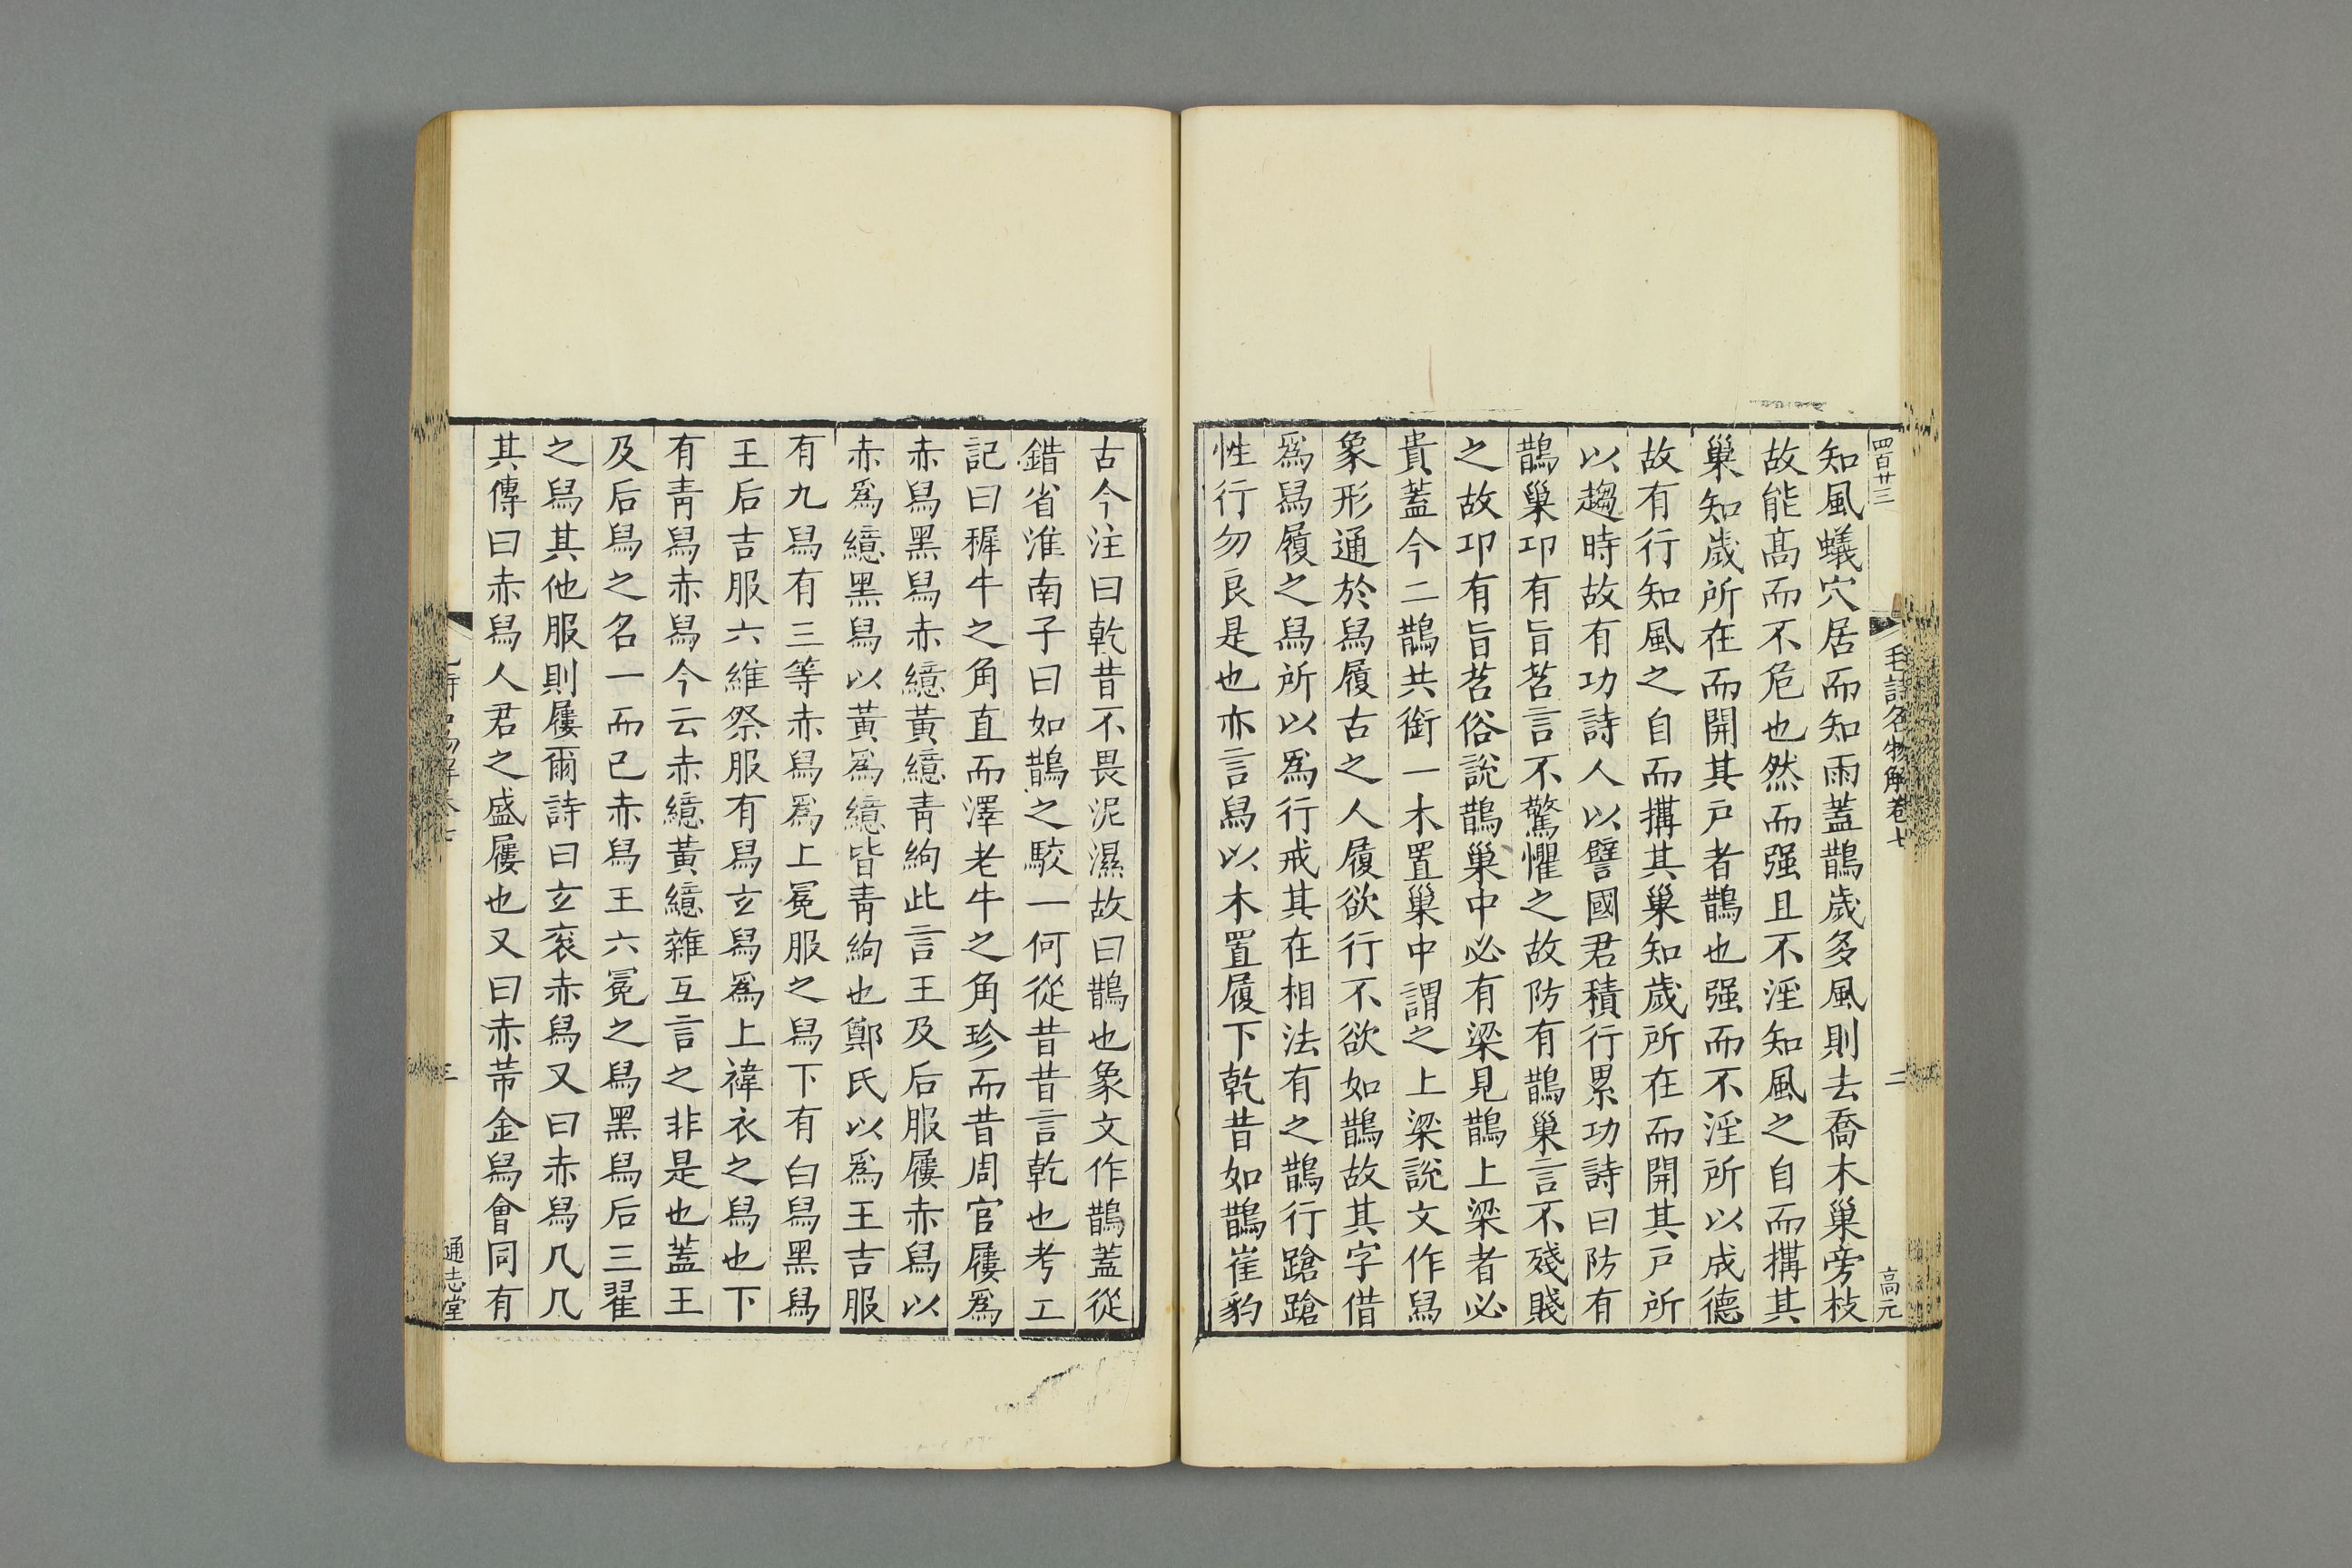 四百廿三
毛詩名物解卷七
二
高元
知風蟻穴居而知雨蓋鵲歲多風則去喬木巢旁枝
故能髙而不危也然而强且不淫知風之自而搆其
巢知歲所在而開其戸者鵲也强而不淫所以成德
故有行知風之自而搆其巢知歲所在而開其戸所
以趨時故有功詩人以譬國君積行累功詩曰防有
鵲巢卭有旨苕言不驚懼之故防有鵲巢言不殘賤
之故卭有旨苕俗說鵲巢中必有梁見鵲上梁者必
貴蓋今二鵲共銜一木置巢中謂之上梁說文作舄
象形通於舄履古之人履欲行不欲如鵲故其字借
爲舄履之舄所以爲行戒其在相法有之鵲行蹌蹌
性行勿良是也亦言舄以木置履下乾昔如鵲崔豹
古今注曰乾昔不畏泥濕故曰鵲也象文作鵲蓋從
錯省淮南子曰如鵲之駮一何從昔昔言乾也考工
記曰穉牛之角直而澤老牛之角珍而昔周官屨爲
赤舄黑舄赤繶黃繶青絇此言王及后服屨赤舄以
赤爲繶黑舄以黃爲繶皆青絇也鄭氏以爲王吉服
有九舄有三等赤舄爲上冕服之舄下有白舄黑舄
王后吉服六維祭服有舄玄舄爲上褘衣之舄也下
有青舄赤舄今云赤繶黃繶雜互言之非是也蓋王
及后舄之名一而已赤舄王六冕之舄黑舄后三翟
之舄其他服則屨爾詩曰玄衮赤舄又曰赤舄几几
其傳曰赤舄人君之盛屨也又曰赤芾金舄會同有
三
通志堂